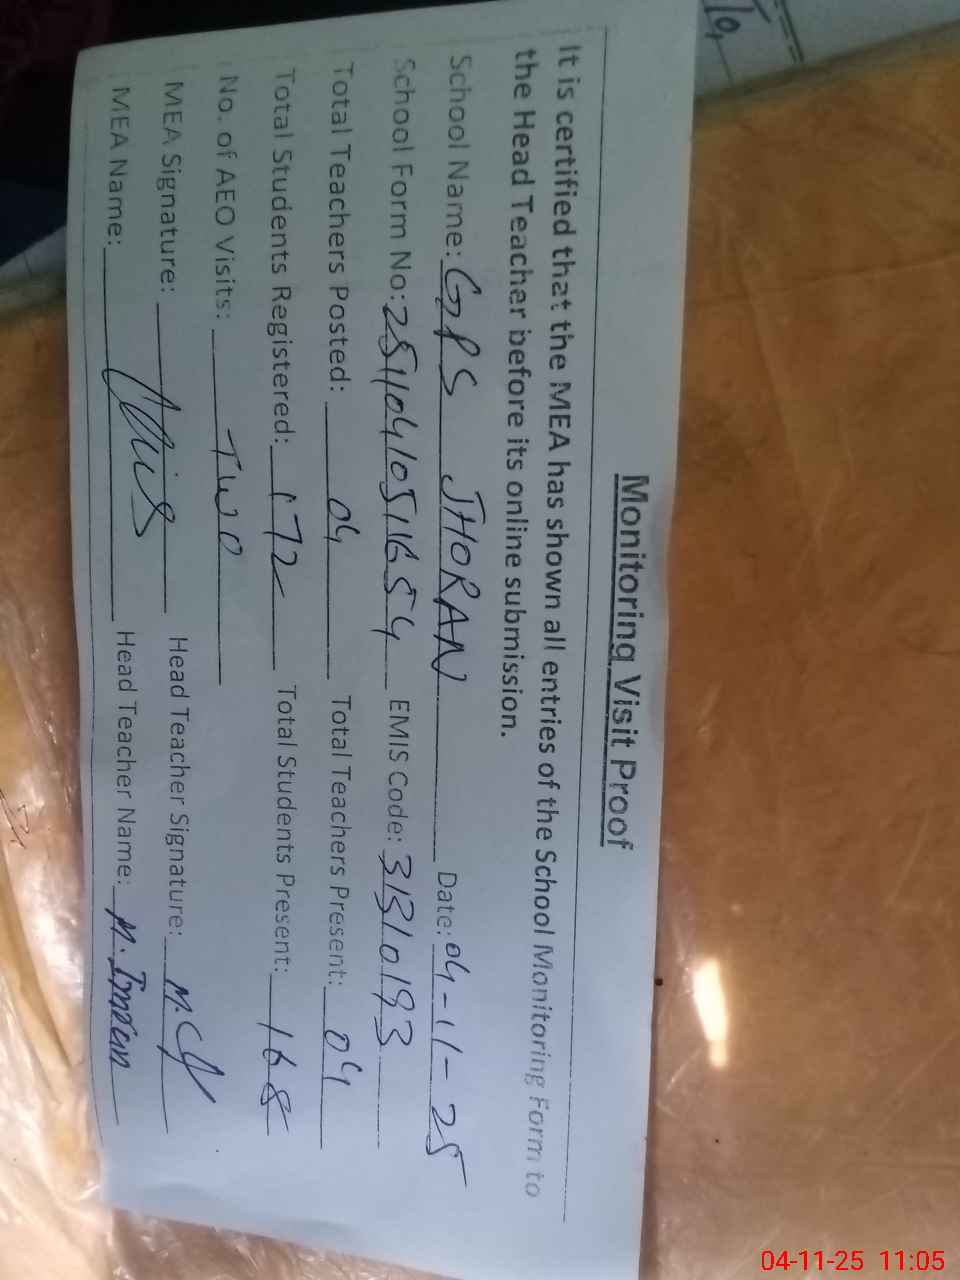 Monitoring Visit Proof
It is certified that the MEA has shown all entries of the School Monitoring Form to
the Head Teacher before its online submission.
School Name: GPS JHORAN Date: 04-11-25
School Form No: 2511041051654 EMIS Code: 31310193
Total Teachers Posted: 04 Total Teachers Present: 04
Total Students Registered: 172 Total Students Present: 168
No. of AEO Visits: TWO
MEA Signature: Head Teacher Signature:
MEA Name: Head Teacher Name: M. Imran
04-11-25 11:05